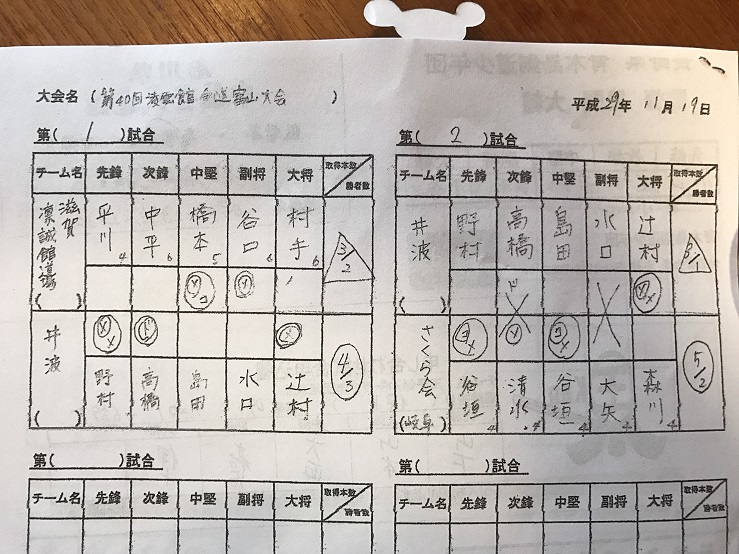 大会名 (第40回凌雲館剣道富山大会)
平成29年 11月 19日
第( 1 )試合
チーム名 先鋒 次鋒 中堅 副将 大将 取得本数 勝者数
滋賀 凛誠館道場 ( ) 平川4 中平6 橋本5 谷口6 村手6 3/2
メコ メ
メメ ド メ
井波 ( ) 野村 高橋 島田 水口 辻村 4/3
第( 2 )試合
チーム名 先鋒 次鋒 中堅 副将 大将 取得本数 勝者数
井波 ( ) 野村 高橋 島田 水口 辻村
ド メメ
コメ メ コメ
さくら会 (岐阜) 谷垣4 清水4 谷垣4 大矢4 森川4 5/2
第( )試合
チーム名 先鋒 次鋒 中堅 副将 大将 取得本数 勝者数
第( )試合
チーム名 先鋒 次鋒 中堅 副将 大将 取得本数 勝者数